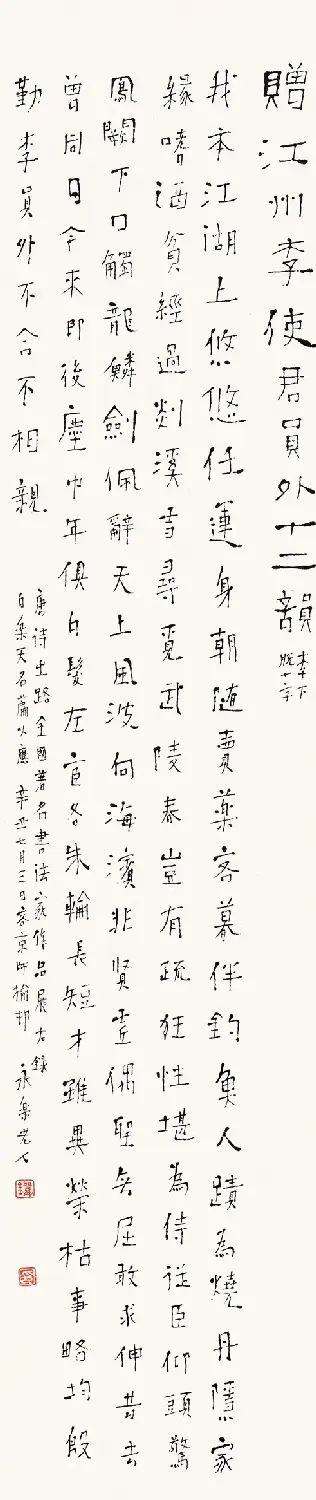 贈江州李使君員外十二韻
李下
脫十字
我本江湖上悠悠任運身朝隨賣藥客暮伴釣魚人蹟為燒丹隱家
緣嗜酒貧經過剡溪雪尋覓武陵春豈有疏狂性堪為侍從臣仰頭驚
鳳闕下口觸龍鱗劍佩辭天上風波向海濱非賢虛偶聖無屈敢求伸昔去
曾同日今來即後塵中年俱白髮左宦各朱輪長短才雖異榮枯事略均殷
勤李員外不合不相親
唐詩之路全國著名書法家作品展右錄
白樂天名篇以應 辛丑七月三日客京師榆邨 永樂老人